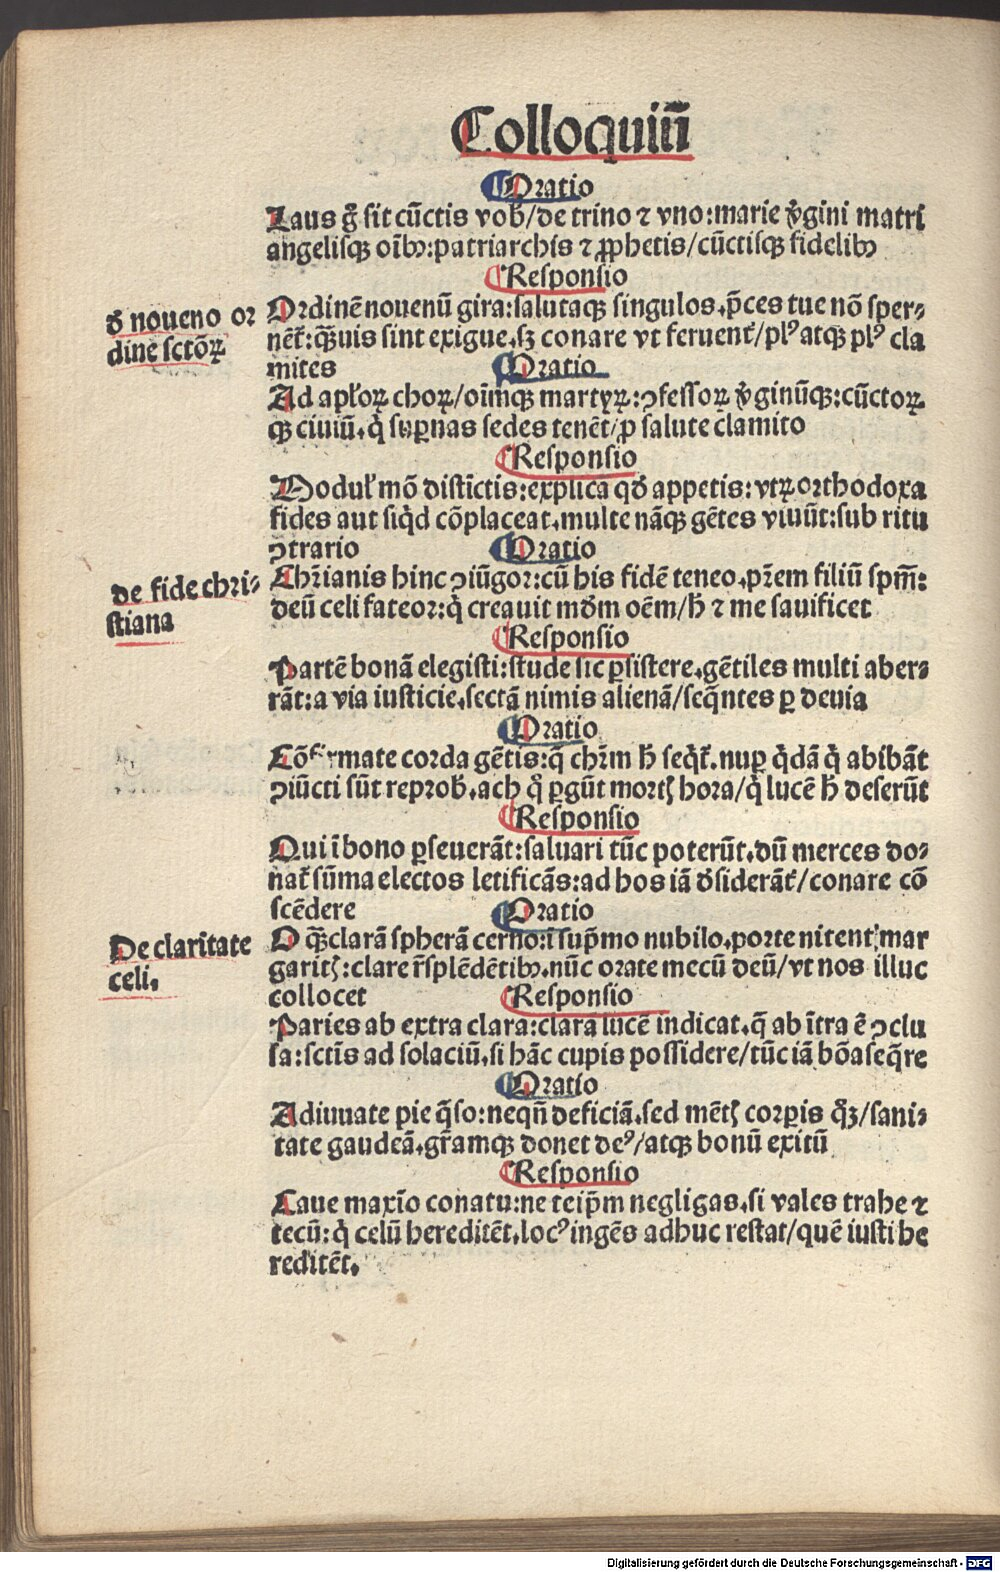 Colloquiū
Oratio
Laus g̃ sit cũctis vob̃/de trino ⁊ vno:marie v̓gini matri
angelisqꝫ oĩbꝫ:patriarchis ⁊ ꝓphetis/cũctisqꝫ fidelibꝫ
Responsio
d̓ noueno or
dine sctõꝝ
Ordinẽ nouenũ gira:salutaqꝫ singulos.p̃ces tue nõ sper⸗
nẽt̃:q̃uis sint exigue.sꝫ conare vt feruent̃/plꝰ atqꝫ plꝰ cla
mites
Oratio
Ad apl̃oꝝ choꝝ/oĩmqꝫ martyꝝ:ꝯfessoꝝ v̓ginũqꝫ:cũctoꝝ
qꝫ ciuiũ.q̇ suꝑnas sedes tenẽt/ꝓ salute clamito
Responsio
Modul̃ mõ distĩctis:explica qd̓ appetis:vtꝝ orthodoxa
fides aut siq̇d cõplaceat.multe nãqꝫ gẽtes viuũt:sub ritu
ꝯtrario
Oratio
de fide chri⸗
stiana
Chr̃ianis hinc ꝯiũgor:cũ his fidẽ teneo.pr̃em filiũ spm̃:
deũ celi fateor:q̇ creauit mdm̃ oẽm/h̃ ⁊ me sauificet
Responsio
Partẽ bonã elegisti:stude sic ꝑsistere.gẽtiles multi aber⸗
rãt:a via iusticie.sectã nimis alienã/seq̃ntes ꝑ deuia
Oratio
Cõfirmate corda gẽtis:q̃ chr̃m h̃ seq̇t̃.nuꝑ q̇dã q̇ abibãt
ꝯiũcti sũt reprob̃.ach q̊ ꝑgũt mortꝭ hora/q̇ lucẽ h̃ deserũt
Responsio
Qui ĩ bono ꝑseuerãt:saluari tũc poterũt.dũ merces do⸗
nat̃ sũma electos letificãs:ad hos iã d̓siderãt̃/conare cõ
scẽdere
Oratio
De claritate
celi.
O q̃clarã spherã cerno:ĩ sup̃mo nubilo.porte nitent̃ mar
garitꝭ:clare r̃splẽdẽtibꝫ.nũc orate mecũ deũ/vt nos illuc
collocet
Responsio
Paries ab extra clara:clarã lucẽ indicat.q̃ ab ĩtra ẽ ꝯclu
sa:sctĩs ad solaciũ.si hãc cupis possidere/tũc iã bõa seq̃re
Oratio
Adiuuate pie q̃so:neqñ deficiã.sed mẽtꝭ corꝑis q̊ꝫ/sani⸗
tate gaudeã.gr̃amqꝫ donet deꝰ/atqꝫ bonũ exitũ
Responsio
Caue maxĩo conatu:ne teip̃m negligas.si vales trahe ⁊
tecũ:q̇ celũ hereditẽt.locꝰ ingẽs adhuc restat/quẽ iusti he
reditẽt.
Digitalisierung gefördert durch die Deutsche Forschungsgemeinschaft - DFG